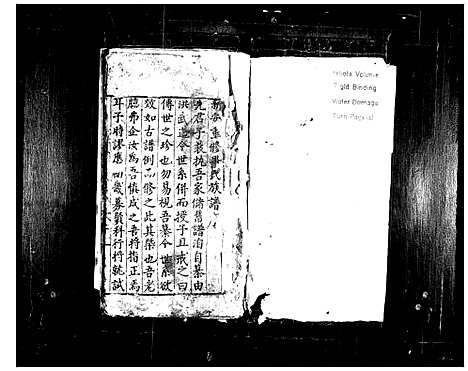 新安重修 氏族譜
先君子裝執吾家偹舊譜洎自纂由
洪武迄今世系併而授予且戒之曰
傳世之珍也勿易視吾纂今世系欲
效如古譜例而修之此其槩也吾老
為吾慎成之吾將指正焉
耳予時謬應 募貢科行將就試
Whole Volume
Tight Binding
Water Damage
Torn Page(s)